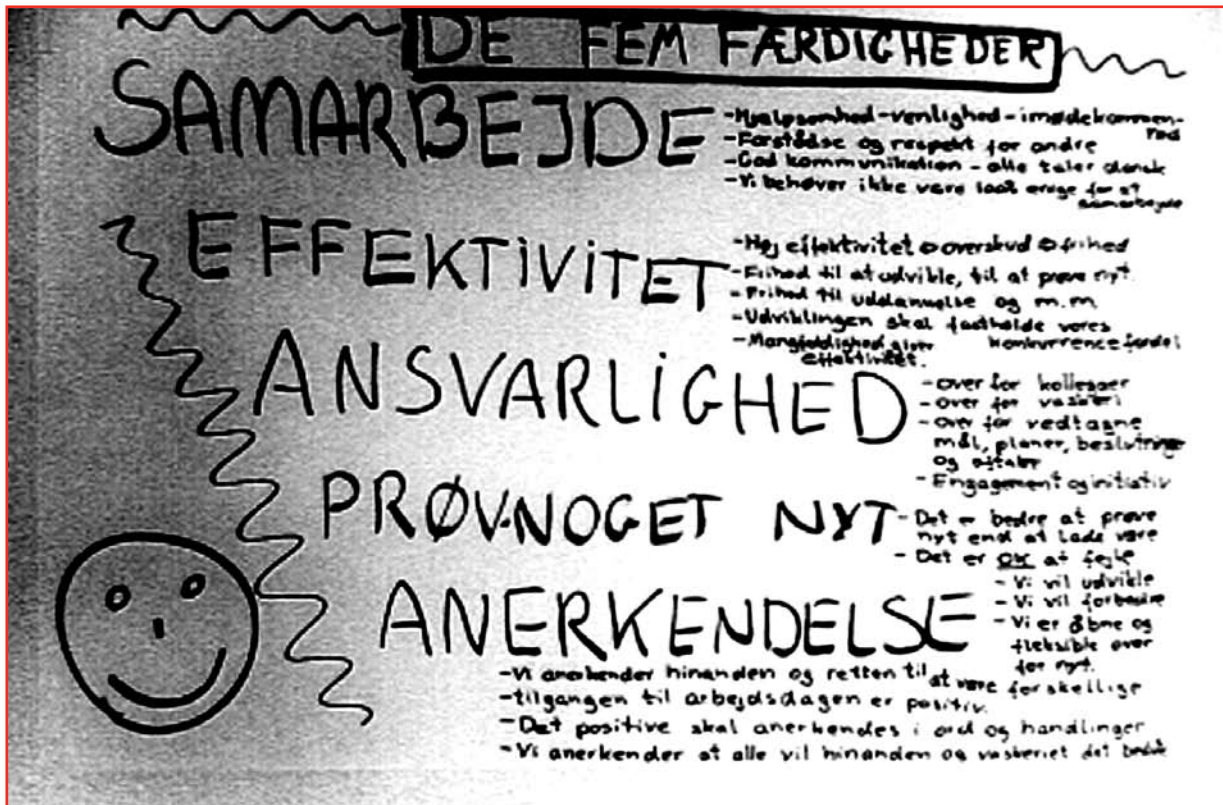 DE FEM FÆRDIGHEDER
SAMARBEJDE
- Hjælpsomhed - venlighed - imødekommen-
hed
- Forståelse og respekt for andre
- God kommunikation - alle taler dansk
- Vi behøver ikke være lige enige for at
samarbejde
EFFEKTIVITET
- Høj effektivitet overskud frihed
- Frihed til at udvikle, til at prøve nyt.
- Frihed til uddannelse og m.m
- Udviklingen skal fastholde vores
konkurrencefordel
- Mangfoldighed giver
effektivitet.
ANSVARLIGHED
- over for kollegaer
- over for vaskeri
- over for vedtagne
mål, planer, beslutninger
og aftaler
- Engagement og initiativ
PRØV-NOGET NYT
- Det er bedre at prøve
nyt end at lade være
- Det er OK at fejle
- Vi vil udvikle
- Vi vil forbedre
- Vi er åbne og
fleksible over
for nyt.
ANERKENDELSE
- Vi anerkender hinanden og retten til at være forskellige
- tilgangen til arbejdsdagen er positiv.
- Det positive skal anerkendes i ord og handlinger
- Vi anerkender at alle vil hinanden og vaskeriet det bedste